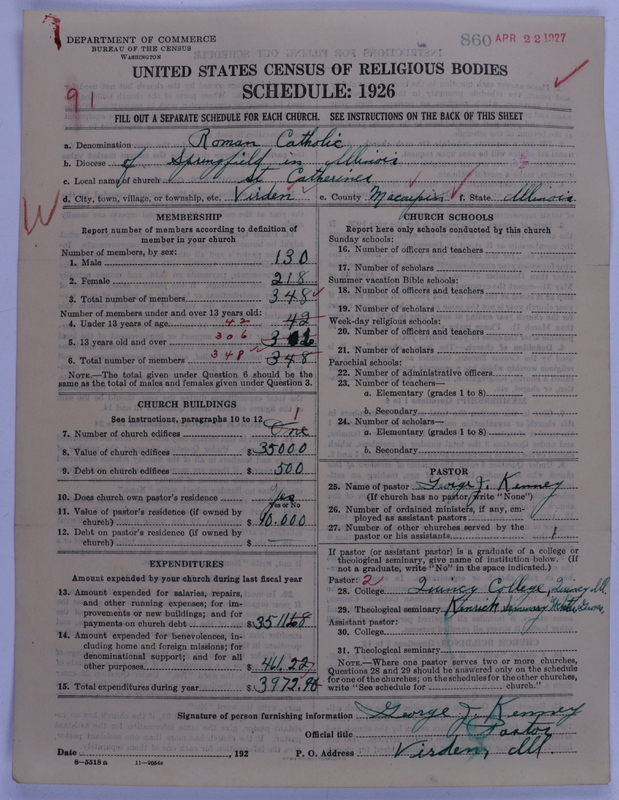 DEPARTMENT OF COMMERCE
BUREAU OF THE CENSUS
WASHINGTON
860 APR 22 1927
UNITED STATES CENSUS OF RELIGIOUS BODIES
SCHEDULE: 1926
91
FILL OUT A SEPARATE SCHEDULE FOR EACH CHURCH. SEE INSTRUCTIONS ON THE BACK OF THIS SHEET
a. Denomination Roman Catholic
b. Diocese of Springfield in Illinois
c. Local name of church St Catherines
d. City, town, village, or township, etc. Virden e. County Macoupin f. State Illinois
W
MEMBERSHIP
Report number of members according to definition of
member in your church
Number of members, by sex:
1. Male 130
2. Female 218
3. Total number of members 348
Number of members under and over 13 years old:
4. Under 13 years of age 42 42
5. 13 years old and over 306
6. Total number of members 348 348
NOTE.—The total given under Question 6 should be the
same as the total of males and females given under Question 3.
CHURCH BUILDINGS
See instructions, paragraphs 10 to 12
1
7. Number of church edifices One
8. Value of church edifices $ 35000
9. Debt on church edifices $ 500
10. Does church own pastor's residence Yes
Yes or No
11. Value of pastor's residence (if owned by
church) $ 10.000
12. Debt on pastor's residence (if owned by
church) $ —
EXPENDITURES
Amount expended by your church during last fiscal year
13. Amount expended for salaries, repairs,
and other running expenses; for im-
provements or new buildings; and for
payments on church debt $ 3511.68
14. Amount expended for benevolences, in-
cluding home and foreign missions; for
denominational support; and for all
other purposes $ 461.22
15. Total expenditures during year $ 3972.90
CHURCH SCHOOLS
Report here only schools conducted by this church
Sunday schools:
16. Number of officers and teachers
17. Number of scholars
Summer vacation Bible schools:
18. Number of officers and teachers
19. Number of scholars
Week-day religious schools:
20. Number of officers and teachers
21. Number of scholars
Parochial schools:
22. Number of administrative officers
23. Number of teachers—
a. Elementary (grades 1 to 8)
b. Secondary
24. Number of scholars—
a. Elementary (grades 1 to 8)
b. Secondary
PASTOR
25. Name of pastor George J. Kenney
(If church has no pastor, write "None")
26. Number of ordained ministers, if any, em-
ployed as assistant pastors
27. Number of other churches served by the
pastor or his assistants 1
If pastor (or assistant pastor) is a graduate of a college or
theological seminary, give name of institution below. (If
not a graduate, write "No" in the space indicated.)
Pastor: 2
28. College Quincy College, Quincy, Ill.
29. Theological seminary Kenrick Seminary Webster Groves
Assistant pastor:
30. College
31. Theological seminary
NOTE.—Where one pastor serves two or more churches,
Questions 28 and 29 should be answered only on the schedule
for one of the churches; on the schedules for the other churches,
write "See schedule for church."
Signature of person furnishing information George J. Kenney
Official title Pastor
Date , 192 P. O. Address Virden, Ill.
8—5518a 11—90548